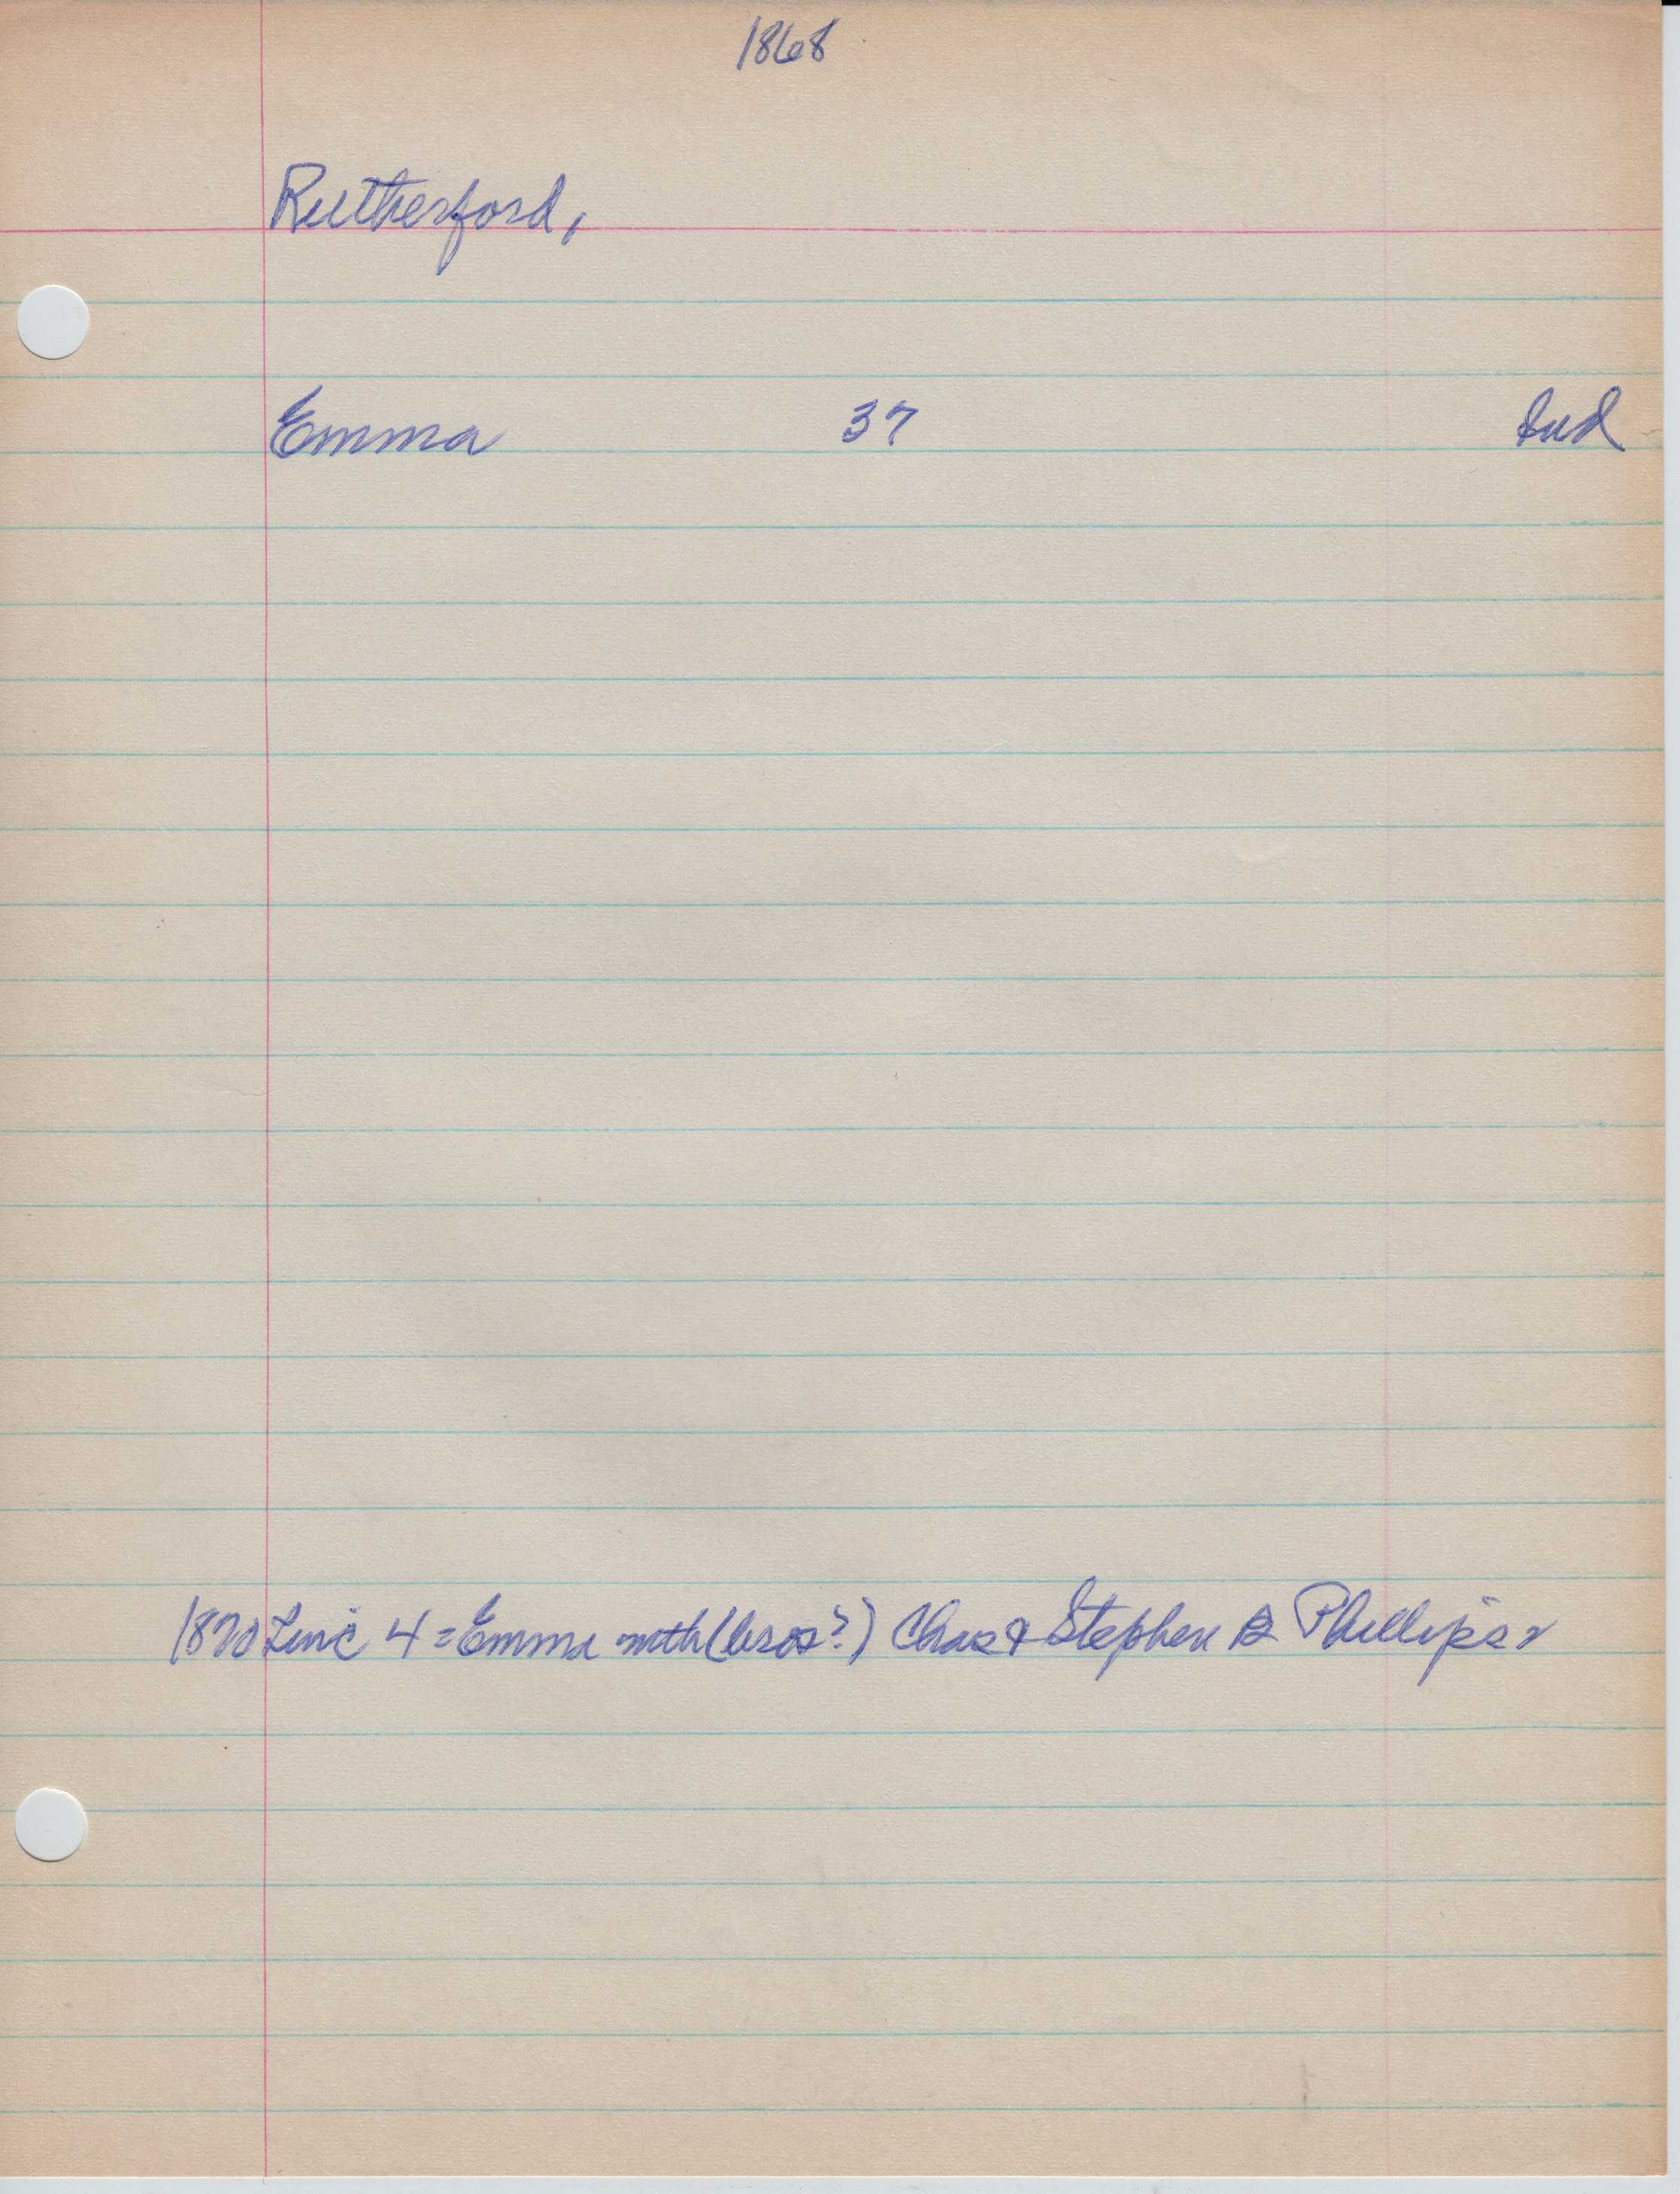 1868
Rutherford,
Emma 37 Ind
1870 Linc 4 = Emma with (bros?) Chas & Stephen B Phillips